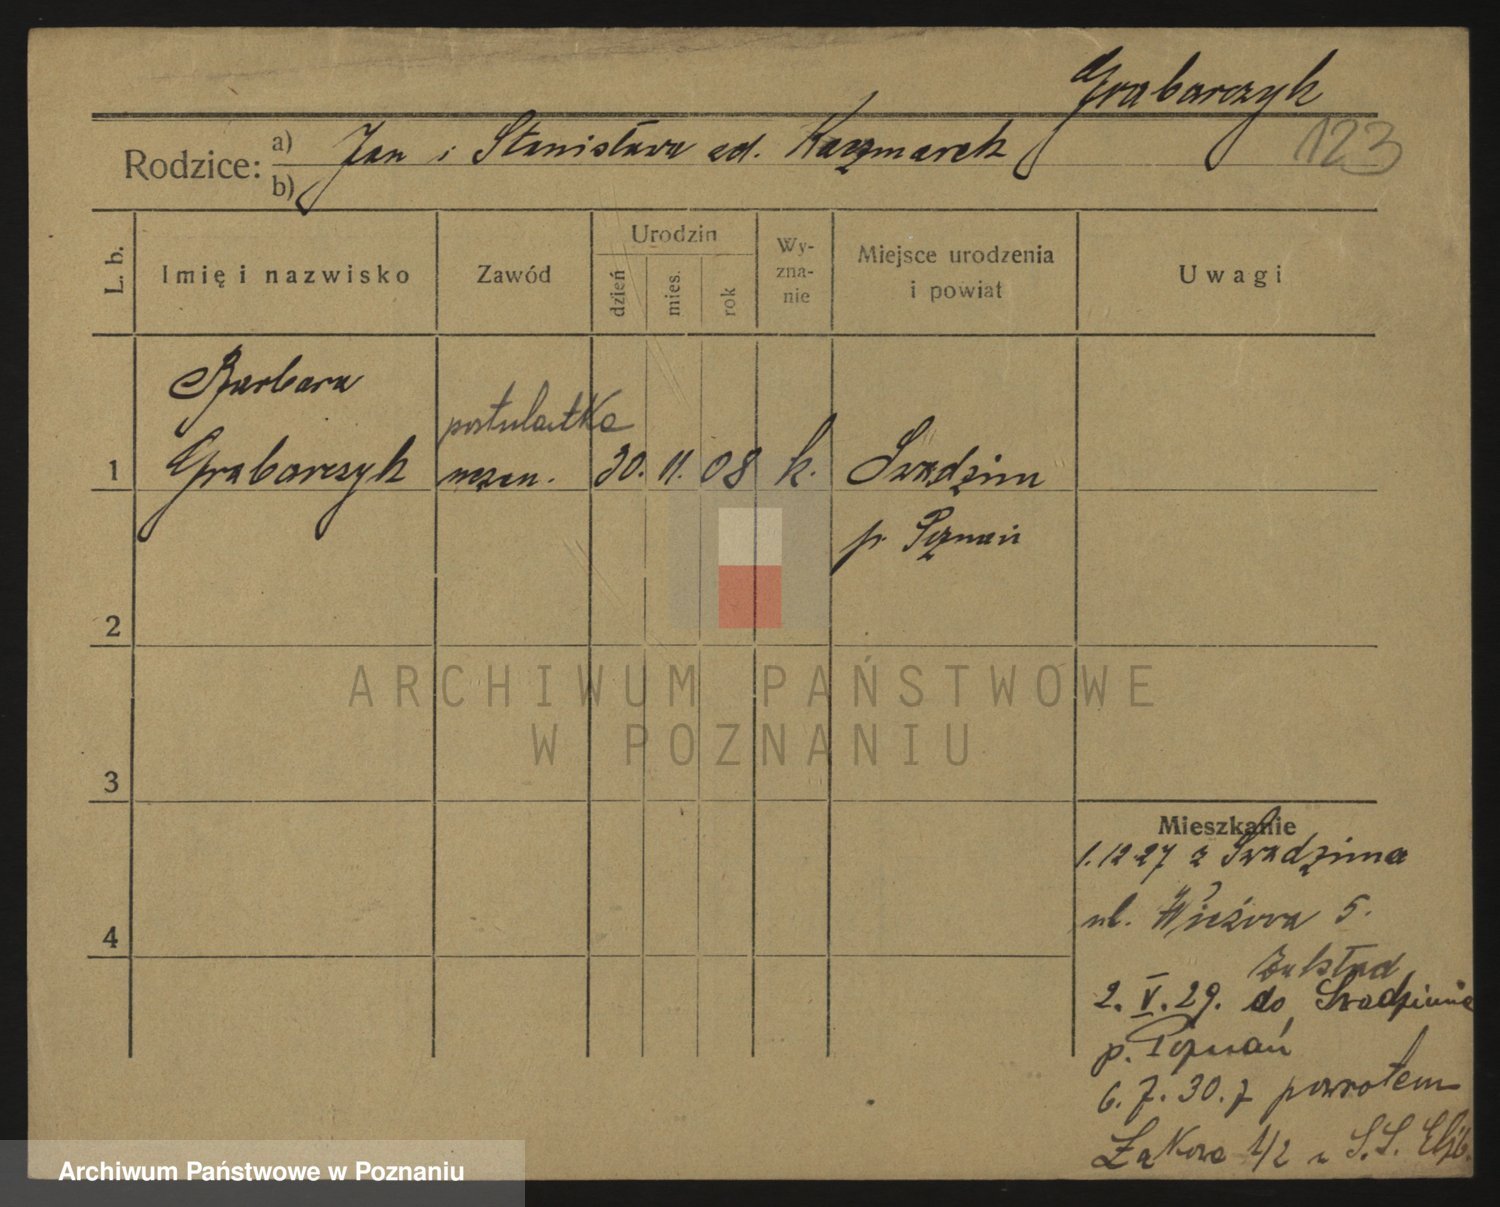 Grabarczyk
123
Rodzice: a) Jan i Stanisława zd. Kaczmarek
b)
L. b. Imię i nazwisko Zawód Urodzin dzień mies. rok Wy-zna-nie Miejsce urodzenia i powiat Uwagi
Barbara
postulantka
1 Grabarczyk uczen. 30. 11. 08 k. Swadzim
p. Poznań
2
ARCHIWUM PAŃSTWOWE
W POZNANIU
3
Mieszkanie
1.12 27 z Swadzima
ul. Wieżowa 5.
Zakład
4
2. V. 29. do Swadzimia
p. Poznań
6. 7. 30. z powrotem
Łąkowa 1/2 u S.S. Elżb.
Archiwum Państwowe w Poznaniu